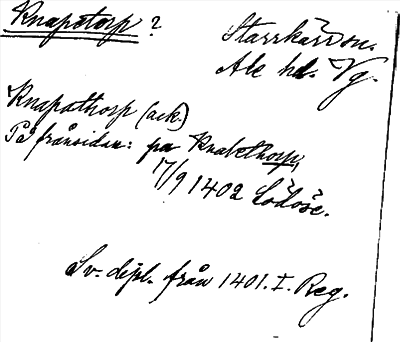 Knapetorp?
Starrkärr sn.
Ale hd. Vg.
Knapathorp (ack.)
På frånsidan: pa Knakethorp,
17/9 1402 Lödöse.
Sv. dipl. från 1401. I. Reg.